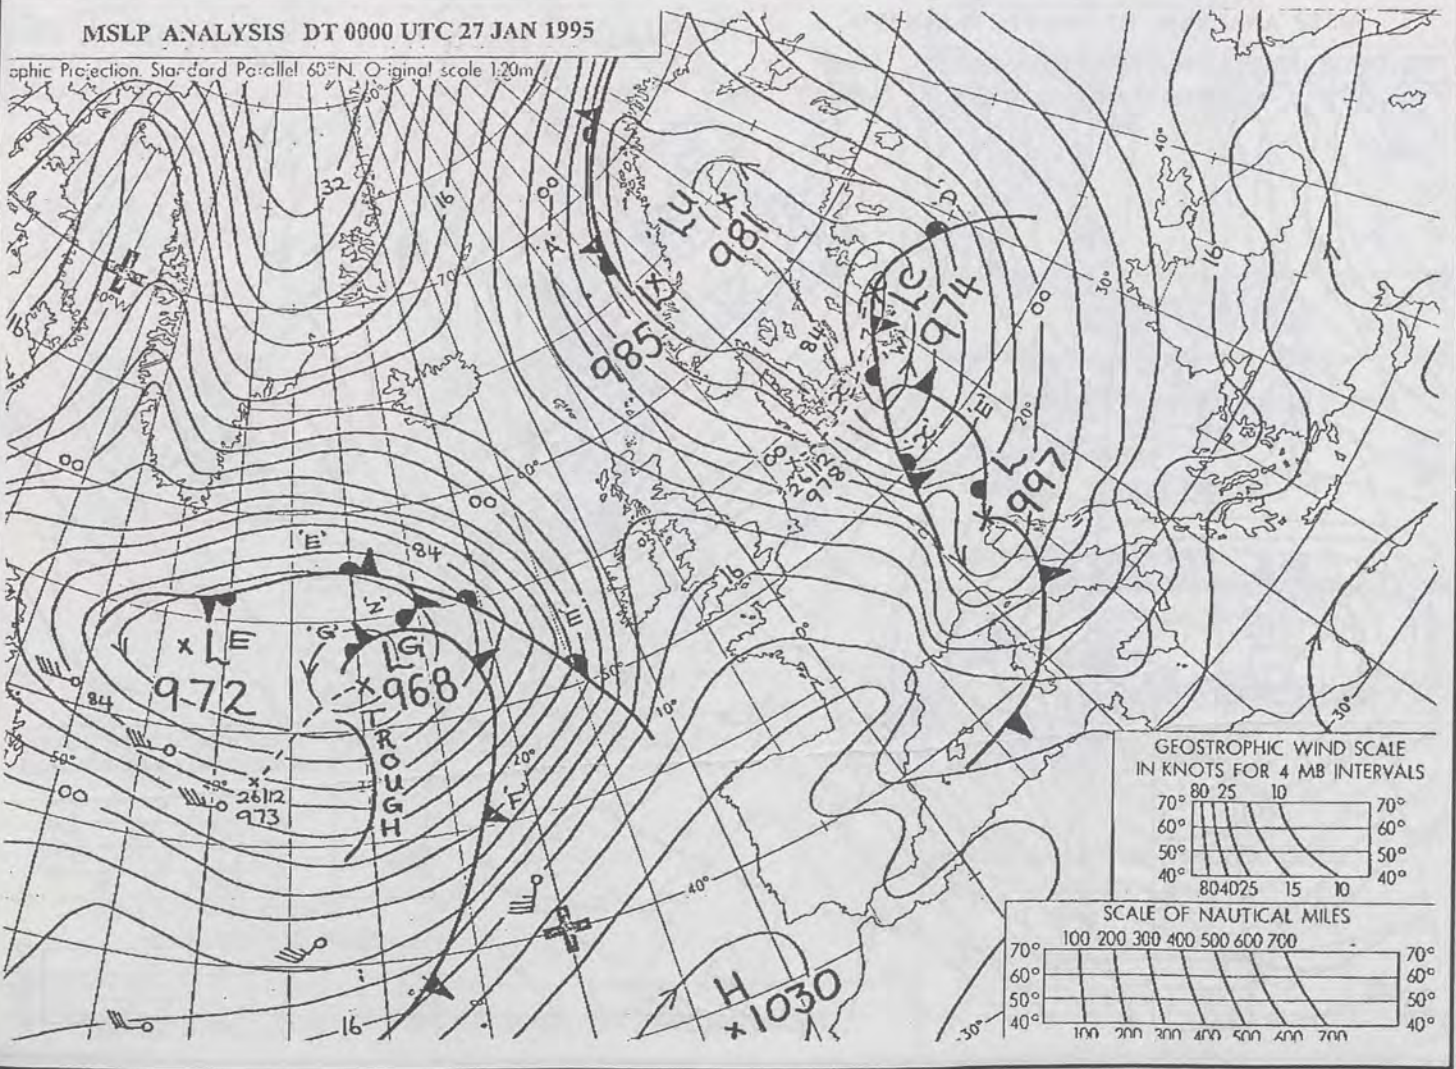 MSLP ANALYSIS DT 0000 UTC 27 JAN 1995
aphic Projection. Standard Parallel 60°N. Original scale 1:20m
32
16
00
'A'
70°
16
L U
981
'D'
L C
974
985
84
00
16
40°
30°
20°
'E'
'X'
L
997
26/12
978
00
00
60°
'E'
84
'Z'
'G'
L E
972
L G
968
TROUGH
84
50°
00
40°
26/12
973
'F'
20°
50°
10°
0°
16
40°
16
H
1030
30°
30°
GEOSTROPHIC WIND SCALE
IN KNOTS FOR 4 MB INTERVALS
80 25 10
70° 70°
60° 60°
50° 50°
40° 40°
80 40 25 15 10
SCALE OF NAUTICAL MILES
100 200 300 400 500 600 700
70° 70°
60° 60°
50° 50°
40° 40°
100 200 300 400 500 600 700